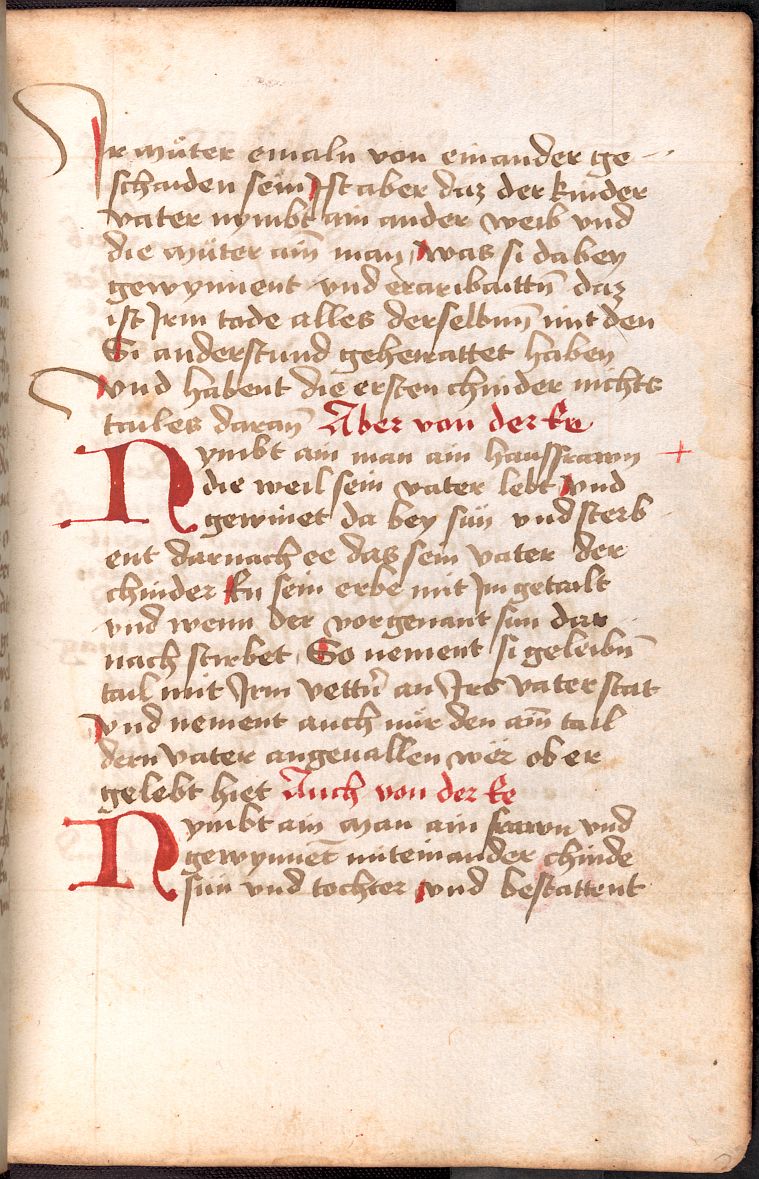 Ir muͤter emaln von einander ge-
schaiden sein Ist aber daz der kinder
vater nymbt ain ander weib vnd
die muͤter ain̄ man, was si dabey
gewynnent vnd eraribaittn̄ daz
ist Irm tode alles derselbnn̄ mit den
Si anderstund geheirattet haben
vnd habent die ersten chinder nichts
tailes daran̄ Aber von der Ee
Nymbt ain man ain haussfrawn
die weil sein vater lebt vnd
gewinet da bey sün vnd sterb
ent darnach ee das sein vater der
chinder En sein erbe mit Im getailt
vnd wenn der vorgenant sun dar
nach stirbet, So nement si geleibn̄
tail mit Irm vettn̄ an Irs vater stat
vnd nement auch nür den ain̄ tail
dern vater angeuallen wër ob er
gelebt hiet Auch von der Ee
Nymbt ain man ain frawn vnd
gewynnēt miteinander chinde
sün vnd tochter vnd bestattent